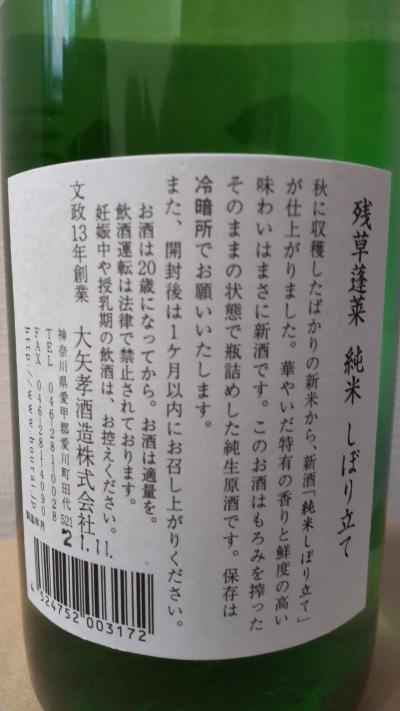 残草蓬莱 純米 しぼり立て
秋に収穫したばかりの新米から、新酒「純米しぼり立て」
が仕上がりました。華やいだ特有の香りと鮮度の高い
味わいはまさに新酒です。このお酒はもろみを搾った
そのままの状態で瓶詰めした純生原酒です。保存は
冷暗所でお願いいたします。
また、開封後は1ヶ月以内にお召し上がりください。
お酒は20歳になってから。お酒は適量を。
飲酒運転は法律で禁止されております。
妊娠中や授乳期の飲酒は、お控えください。
文政13年創業 大矢孝酒造株式会社
神奈川県愛甲郡愛川町田代521
TEL 046-281-0028
FAX 046-281-4090
http://www.hourai.jp
製造年月
21.11
4 524752 003172